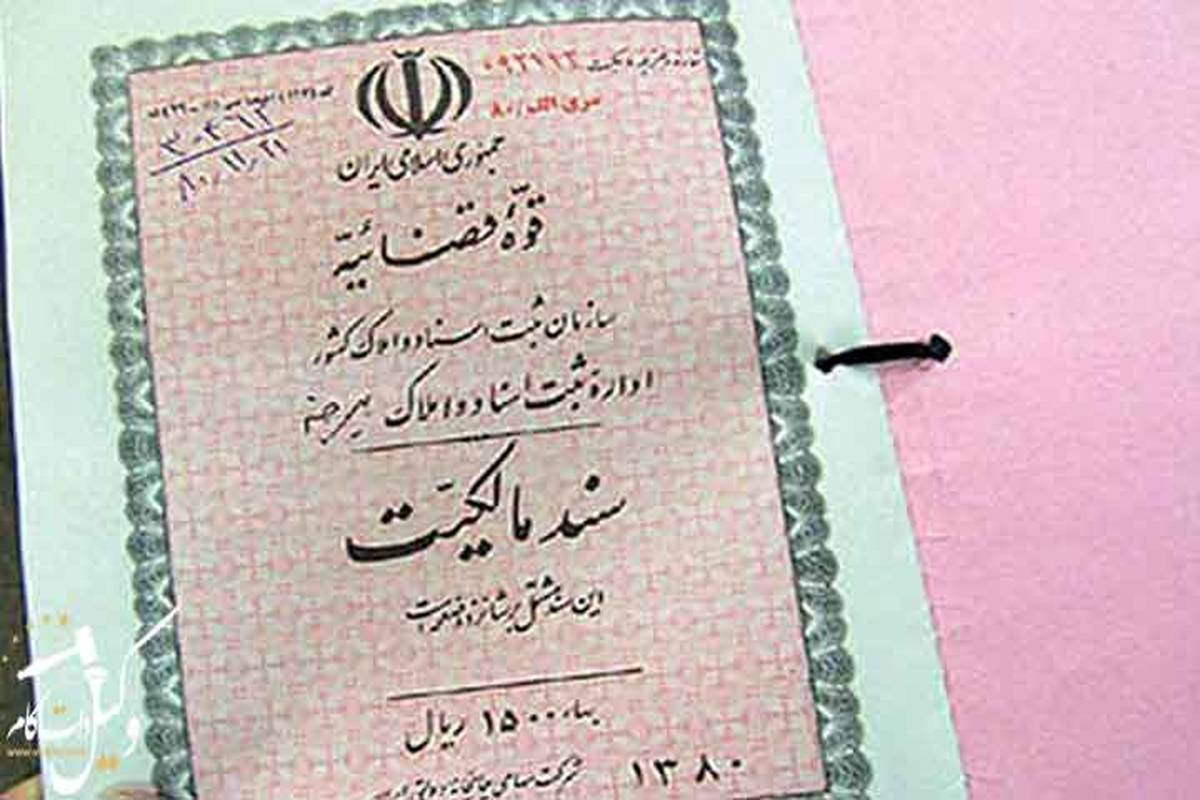 شماره دفترچه مالکیت ۰۹۲۱۲۳
سری الف/۸۰
۳۰۴۶۱۲
۸۰/۱۱/۲۱
جمهوری اسلامی ایران
قوّهٔ قضائیّه
سازمان ثبت اسناد و املاک کشور
ادارهٔ ثبت اسناد و املاک
سند مالکیّت
این سند مشتمل بر شانزده صفحه است
بهاء ۱۵۰۰ ریال
شرکت سهامی چاپخانه دولتی ایران
۱۳۸۰
وکیل دات کام